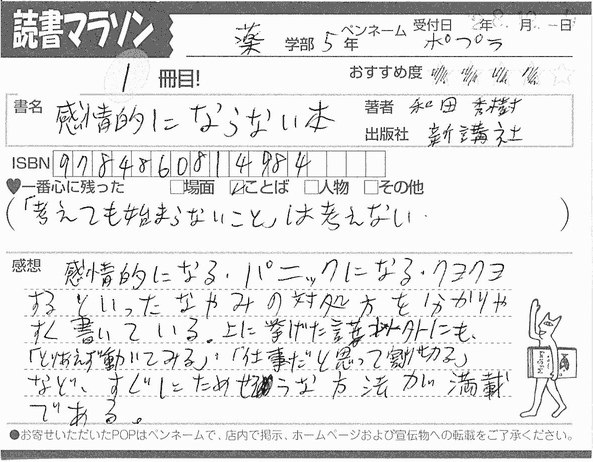 読書マラソン
薬 学部 5年 ペンネーム ポプラ 受付日 年 月 日
1 冊目! おすすめ度
書名 感情的にならない本 著者 和田秀樹
出版社 新講社
ISBN 9784860814984
♥一番心に残った □場面 ☑ことば □人物 □その他
(「考えても始まらないこと」は考えない.)
感想 感情的になる・パニックになる・クヨクヨ
するといったなやみの対処方を分かりや
すく書いている。上に挙げた言葉以外にも、
「とりあえず動いてみる」・「仕事だと思って割り切る」
など、すぐにためせそうな方法が満載
である。
●お寄せいただいたPOPはペンネームで、店内で掲示、ホームページおよび宣伝物への転載をご了承ください。